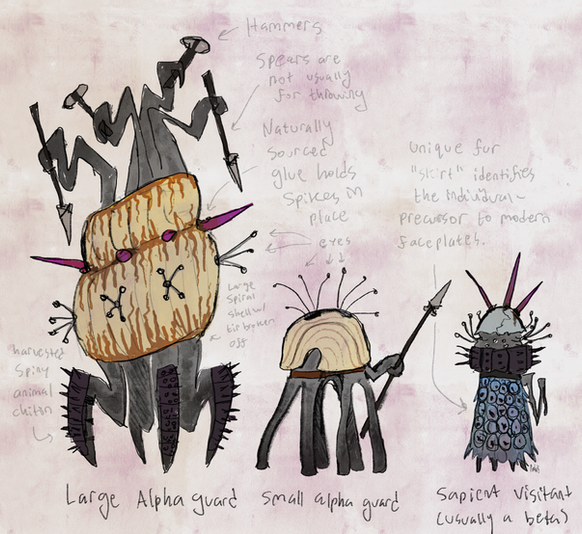 Hammers
Spears are
not usually
for throwing
Naturally
sourced
glue holds
Spikes in
place
eyes
Large
Spiral
shell w/
tip broken
off
harvested
Spiny
animal
chiton
unique fur
"skirt" identifies
the individual-
precursor to modern
faceplates.
Large Alpha guard
Small alpha guard
Sapient Visitant
(usually a beta)